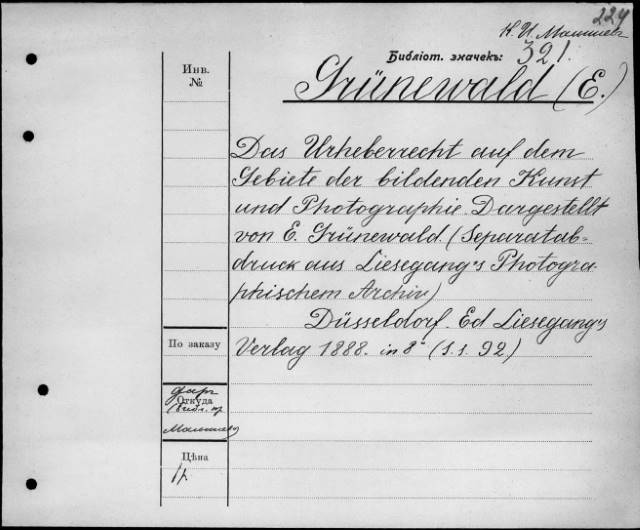 224
Библіот. значекъ: 321.
Инв.
№
Grünewald (E.)
Das Urheberrecht auf dem
Gebiete der bildenden Kunst
und Photographie. Dargestellt
von E. Grünewald. (Separatab=
druck aus Liesegang's Photogra-
phischem Archiv)
Düsseldorf. Ed Liesegang's
Verlag 1888. in 8° (S.S. 92)
По заказу
даръ
Откуда
Цѣна